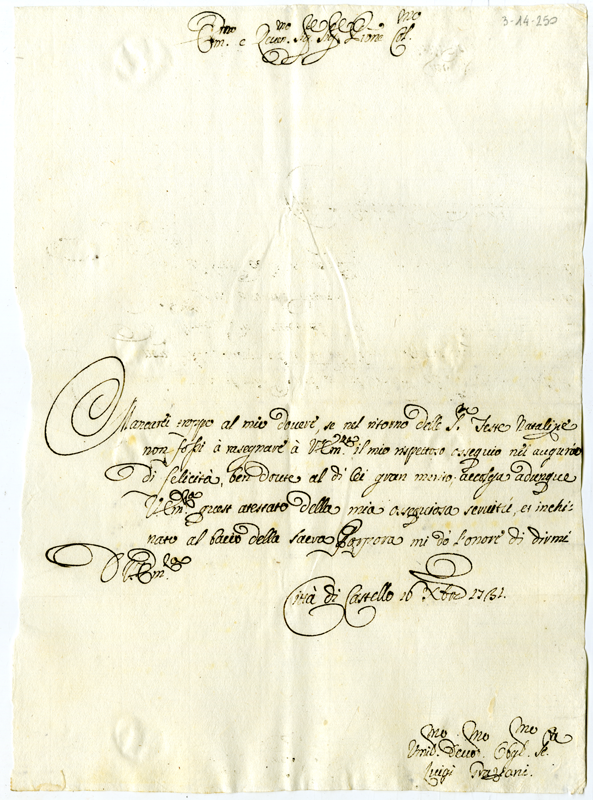 3-14-290
Em.mo e Reuer. mo Sig. Sig. Prone Col. mo
Mancarei troppo al mio douere, se nel ritorno delle S.te Feste Natalizie
non fossi à rasegnare à V. Em.za il mio rispettoso ossequio nei augurij
di felicità, ben douute al di lei gran merito. accolga adunque
V. Em.za quest atestato della mia ossequiosa seruitù, ed inchi-
nato al bacio della sacra Porpora mi do l'onore di dirmi
D V. Em.za
Città di Castello 16 Xbre 1731.
Umil.mo Deuo.mo Obgl.mo Se.re
Luigi